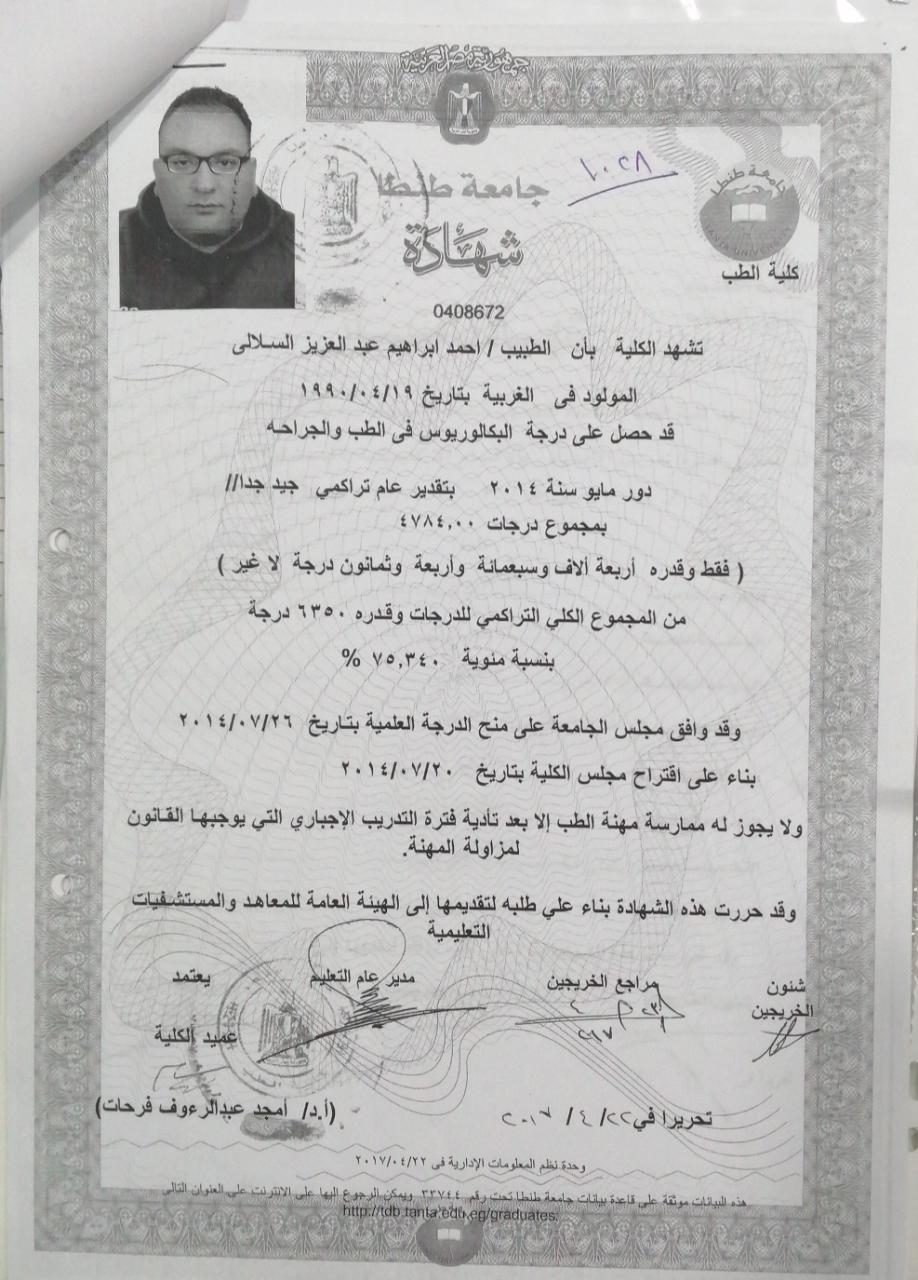 جمهورية مصر العربية
١٠٢٨
جامعة طنطا
جامعة طنطا
TANTA UNIVERSITY
شهادة
كلية الطب
0408672
تشهد الكلية بأن الطبيب / احمد ابراهيم عبد العزيز السلالى
المولود فى الغربية بتاريخ ١٩٩٠/٠٤/١٩
قد حصل على درجة البكالوريوس فى الطب والجراحه
دور مايو سنة ٢٠١٤ بتقدير عام تراكمي جيد جدا//
بمجموع درجات ٤٧٨٤,٠٠
( فقط وقدره أربعة ألاف وسبعمائة وأربعة وثمانون درجة لا غير )
من المجموع الكلي التراكمي للدرجات وقدره ٦٣٥٠ درجة
بنسبة مئوية ٧٥,٣٤٠ %
وقد وافق مجلس الجامعة على منح الدرجة العلمية بتاريخ ٢٠١٤/٠٧/٢٦
بناء على اقتراح مجلس الكلية بتاريخ ٢٠١٤/٠٧/٢٠
ولا يجوز له ممارسة مهنة الطب إلا بعد تأدية فترة التدريب الإجباري التي يوجبها القانون
لمزاولة المهنة.
وقد حررت هذه الشهادة بناء علي طلبه لتقديمها إلى الهيئة العامة للمعاهد والمستشفيات
التعليمية
شئون الخريجين
مراجع الخريجين
مدير عام التعليم
يعتمد
عميد الكلية
(أ.د/ أمجد عبدالرءوف فرحات)
تحريرا في ٢٢/ ٤/ ٢٠١٧
وحدة نظم المعلومات الإدارية فى ٢٠١٧/٠٤/٢٢
هذه البيانات موثقة على قاعدة بيانات جامعة طنطا تحت رقم ٣٣٧٤٤ ويمكن الرجوع اليها على الانترنت على العنوان التالى
http://tdb.tanta.edu.eg/graduates.